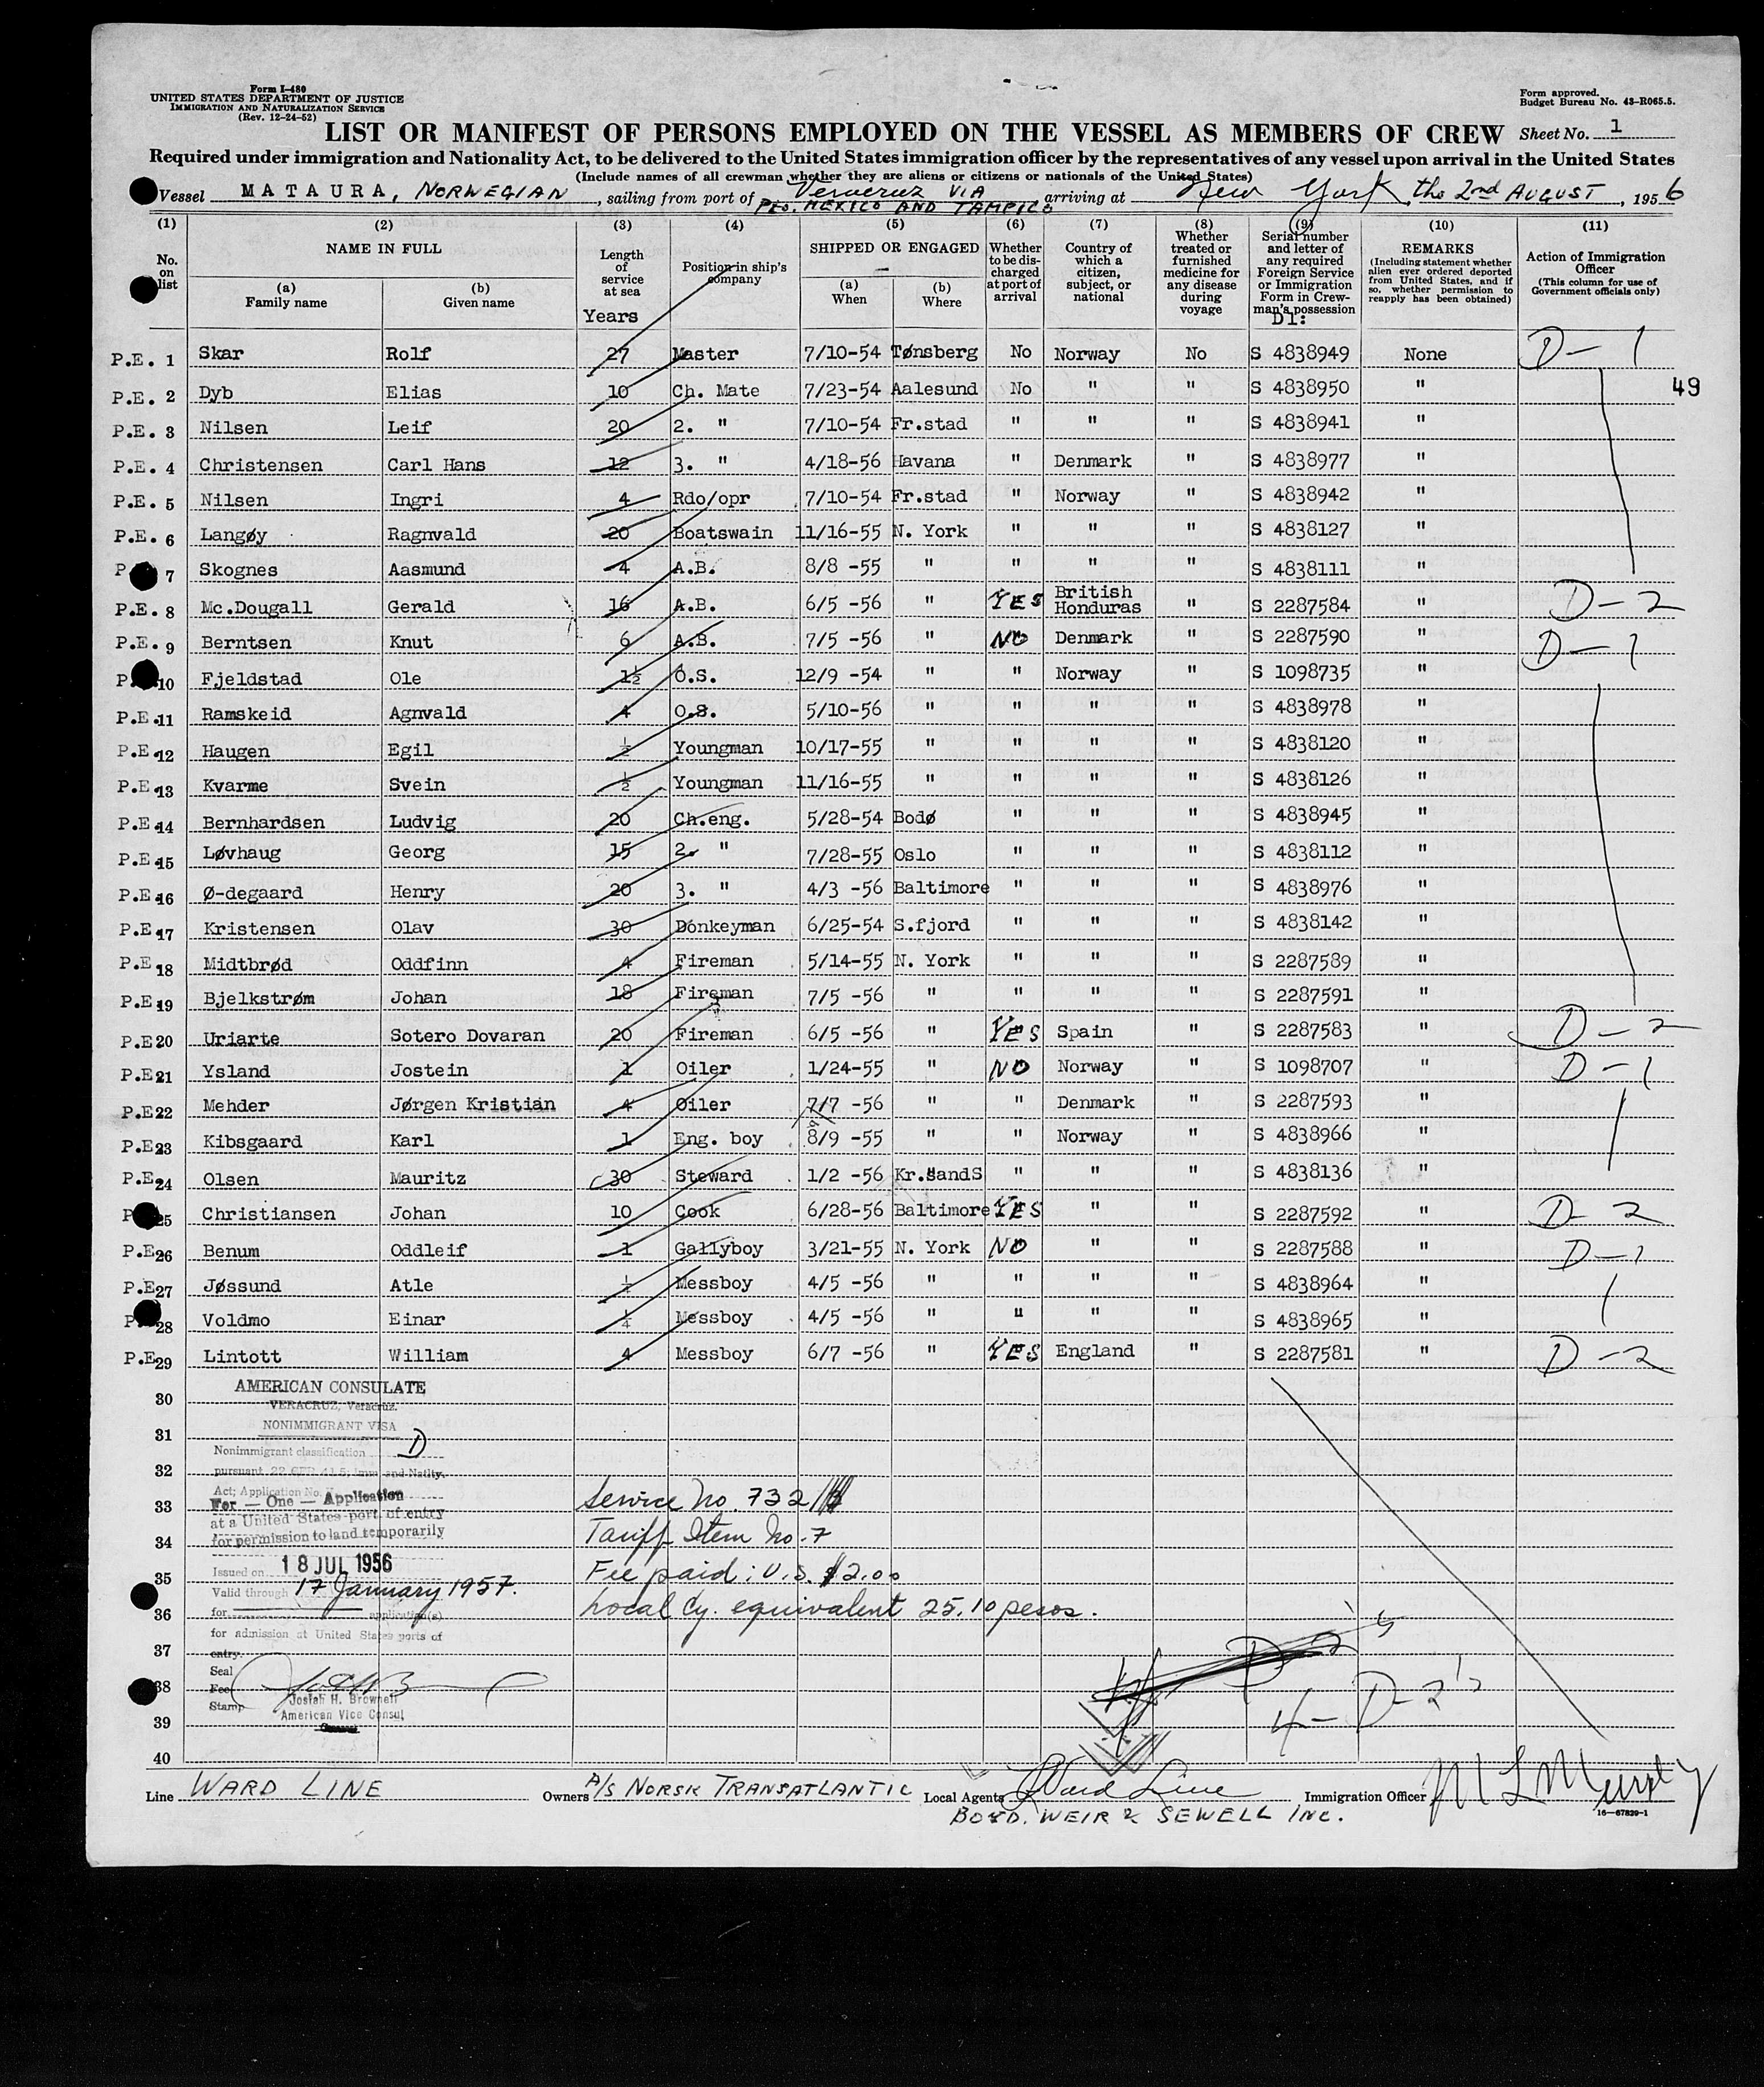 Form I-480
UNITED STATES DEPARTMENT OF JUSTICE
IMMIGRATION AND NATURALIZATION SERVICE
(Rev. 12-24-52)
Form approved.
Budget Bureau No. 43-R065.5.
LIST OR MANIFEST OF PERSONS EMPLOYED ON THE VESSEL AS MEMBERS OF CREW Sheet No. 1
Required under immigration and Nationality Act, to be delivered to the United States immigration officer by the representatives of any vessel upon arrival in the United States
(Include names of all crewman whether they are aliens or citizens or nationals of the United States)
Vessel MATAURA, NORWEGIAN, sailing from port of Veracruz VIA PTO. MEXICO AND TAMPICO arriving at New York, the 2nd AUGUST, 1956
(1) (2) (3) (4) (5) (6) (7) (8) (9) (10) (11)
No. on list
NAME IN FULL
(a) Family name
(b) Given name
Length of service at sea
Years
Position in ship's company
SHIPPED OR ENGAGED
(a) When
(b) Where
Whether to be discharged at port of arrival
Country of which a citizen, subject, or national
Whether treated or furnished medicine for any disease during voyage
Serial number and letter of any required Foreign Service or Immigration Form in Crewman's possession
D1:
REMARKS
(Including statement whether alien ever ordered deported from United States, and if so, whether permission to reapply has been obtained)
Action of Immigration Officer
(This column for use of Government officials only)
P.E. 1 Skar Rolf 27 Master 7/10-54 Tønsberg No Norway No S 4838949 None D-1
P.E. 2 Dyb Elias 10 Ch. Mate 7/23-54 Aalesund No " " S 4838950 " 49
P.E. 3 Nilsen Leif 20 2. " 7/10-54 Fr.stad " " " S 4838941 "
P.E. 4 Christensen Carl Hans 12 3. " 4/18-56 Havana " Denmark " S 4838977 "
P.E. 5 Nilsen Ingri 4 Rdo/opr 7/10-54 Fr.stad " Norway " S 4838942 "
P.E. 6 Langøy Ragnvald 20 Boatswain 11/16-55 N. York " " " S 4838127 "
P 7 Skognes Aasmund 4 A.B. 8/8 -55 " " " " S 4838111 "
P.E. 8 Mc.Dougall Gerald 16 A.B. 6/5 -56 " YES British Honduras " S 2287584 " D-2
P.E. 9 Berntsen Knut 6 A.B. 7/5 -56 " NO Denmark " S 2287590 " D-1
P 10 Fjeldstad Ole 1½ O.S. 12/9 -54 " " Norway " S 1098735 "
P.E.11 Ramskeid Agnvald 4 O.S. 5/10-56 " " " " S 4838978 "
P.E.12 Haugen Egil ½ Youngman 10/17-55 " " " " S 4838120 "
P.E.13 Kvarme Svein ½ Youngman 11/16-55 " " " " S 4838126 "
P.E.14 Bernhardsen Ludvig 20 Ch.eng. 5/28-54 Bodø " " " S 4838945 "
P.E.15 Løvhaug Georg 15 2. " 7/28-55 Oslo " " " S 4838112 "
P.E.16 Ø-degaard Henry 20 3. " 4/3 -56 Baltimore " " " S 4838976 "
P.E.17 Kristensen Olav 30 Donkeyman 6/25-54 S.fjord " " " S 4838142 "
P.E.18 Midtbrød Oddfinn 4 Fireman 5/14-55 N. York " " " S 2287589 "
P.E.19 Bjelkstrøm Johan 18 Fireman 7/5 -56 " " " " S 2287591 "
P.E20 Uriarte Sotero Dovaran 20 Fireman 6/5 -56 " YES Spain " S 2287583 " D-2
P.E21 Ysland Jostein 1 Oiler 1/24-55 " NO Norway " S 1098707 " D-1
P.E22 Mehder Jørgen Kristian 4 Oiler 7/7 -56 " " Denmark " S 2287593 "
P.E23 Kibsgaard Karl 1 Eng. boy 8/9 -55 " " Norway " S 4838966 "
P.E24 Olsen Mauritz 30 Steward 1/2 -56 Kr.sandS " " " S 4838136 "
P 25 Christiansen Johan 10 Cook 6/28-56 Baltimore YES " " S 2287592 " D-2
P.E26 Benum Oddleif 1 Gallyboy 3/21-55 N. York NO " " S 2287588 " D-1
P.E27 Jøssund Atle Messboy 4/5 -56 " " " " S 4838964 "
P. 28 Voldmo Einar ¼ Messboy 4/5 -56 " " " " S 4838965 "
P.E29 Lintott William 4 Messboy 6/7 -56 " YES England " S 2287581 " D-2
AMERICAN CONSULATE
30 VERACRUZ, Veracruz.
NONIMMIGRANT VISA
31
Nonimmigrant classification D
32 pursuant 22 CFR 41.5; Imm and Natlty.
Act; Application No.
33 For — One — Application Service No. 732
at a United States port of entry
34 for permission to land temporarily Tariff Item No. 7
Issued on 18 JUL 1956
35 Valid through 17 January 1957. Fee paid: U.S. $2.00
36 for application(s) Local Cy. equivalent 25.10 pesos.
for admission at United States ports of
37 entry.
Seal
38 Fee
Stamp Josiah H. Brownell
American Vice Consul
39 4- D-2's
40
Line WARD LINE Owners A/S NORSK TRANSATLANTIC Local Agents Ward Line Immigration Officer M L Murphy
BOYD. WEIR & SEWELL INC.
16—67829-1